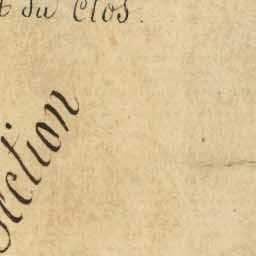 du Clos.
ection